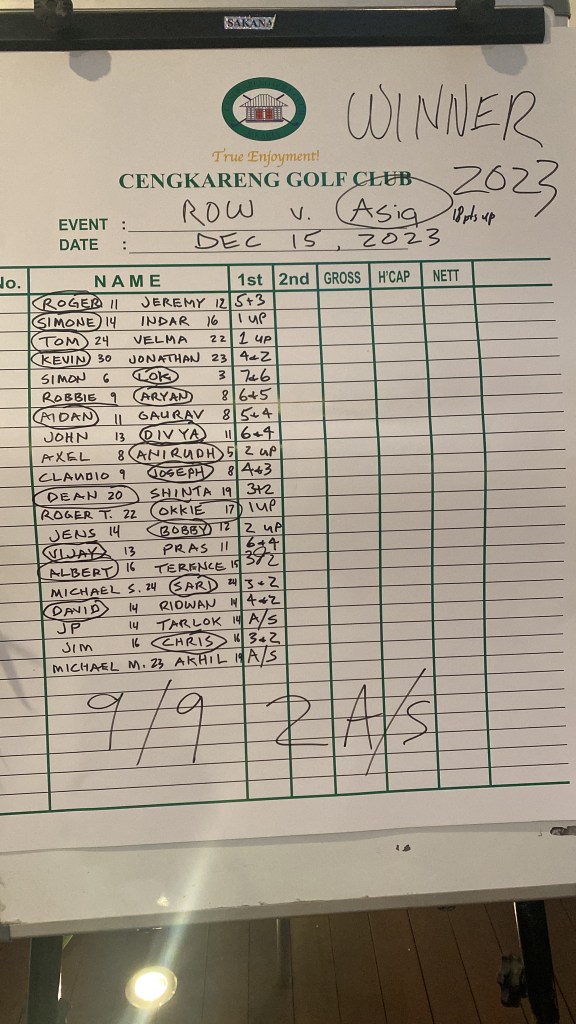 SAKANA
WINNER
2023
True Enjoyment!
CENGKARENG GOLF CLUB
EVENT : ROW v. Asia 18 pts up
DATE : DEC 15, 2023
No. NAME 1st 2nd GROSS H'CAP NETT
ROGER 11 JEREMY 12 5+3
SIMONE 14 INDAR 16 1 UP
TOM 24 VELMA 22 1 UP
KEVIN 30 JONATHAN 23 4+2
SIMON 6 LOK 3 7+6
ROBBIE 9 ARYAN 8 6+5
AIDAN 11 GAURAV 8 5+4
JOHN 13 DIVYA 11 6+4
AXEL 8 ANIRUDH 5 2 UP
CLAUDIO 9 JOSEPH 8 4+3
DEAN 20 SHINTA 19 3+2
ROGER T. 22 OKKIE 17 1 UP
JENS 14 BOBBY 12 2 UP
VIJAY 13 PRAS 11 6+4
ALBERT 16 TERENCE 15 3&2
MICHAEL S. 24 SARI 24 3+2
DAVID 14 RIDWAN 14 4+2
JP 14 TARLOK 14 A/S
JIM 16 CHRIS 16 3+2
MICHAEL M. 23 AKHIL 19 A/S
9/9 2 A/S